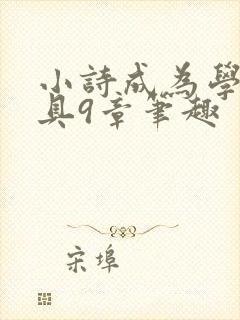 小詩成為學
具9章筆趣
宋埠